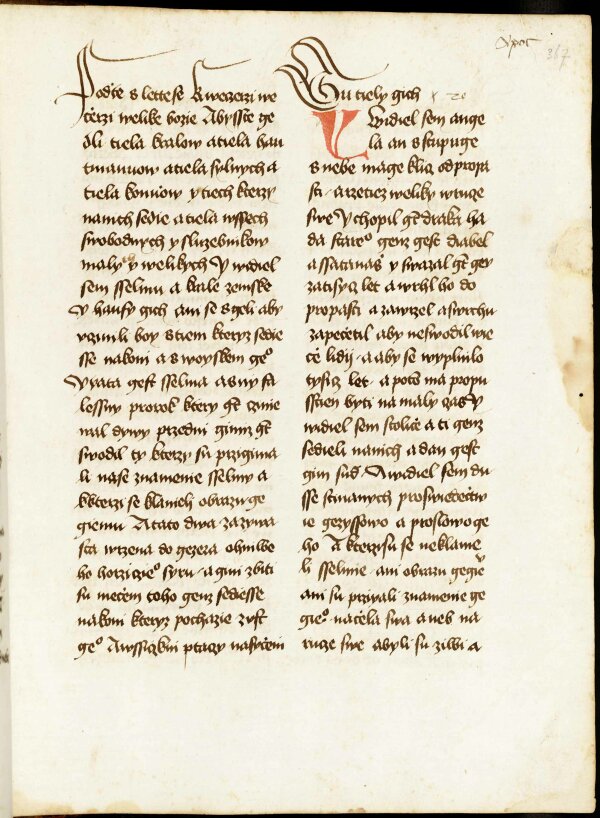 apoc
367
Podte s lettese k weczerzi we
czerzi welike bozie Abysste ge
dli tiela kralow a tiela hau
tmanuow a tiela sylnych a
tiela konuow y tiech kterzy
na nich sedie a tiela wssech
swobodnych y sluzebnikow
malych y welikych Y widiel
sem sselmu a krale zemske
y haufy gich ani se sgeli aby
uczinili boy s tiem kteryz sedie
sse na koni a s woyskem geo
Y yata gest sselma a s ny fa
lessny prorok ktery gt czinie
wal dywy przed ni gimiz gt
swodil ty kterzy su przigima
li nase znamenie sselmy a
kterzi se klanieli obrazu ge
giemu A tato dwa za zywa
sta wrzena do gezera ohniwe
ho horziczieo syru a gini zbiti
su meczem toho genz sedesse
na koni kteryz pochazie z ust
geo A wssiczkni ptaczy nasyczeni
su tiely gich x 20
Y widiel sem ange
la an s stupuge
s nebe mage klicz od propa
sti a rzetiez weliky w rucze
swe Y chopil gt draka ha
da stareo genz gest diabel
a ssatanas y swazal gt gey
za tisycz let a wrhl ho do
propasti a zawrzel a swrchu
zapeczetil aby neswodil wie
cze lidij a aby se wyplnilo
tysicz let a poto ma propu
sstien byti na maly czas Y
widiel sem stolicze a ti genz
sedieli na nich a dan gest
gim sud A widiel sem du
sse stinanych pro swiedectw
ie gezyssowo a pro slowo ge
ho A kterzi su se neklanie
li sselmie ani obrazu gegie
ani su przigali znamenie ge
gieo na czela swa aneb na
rucze swe a byli su ziwi a